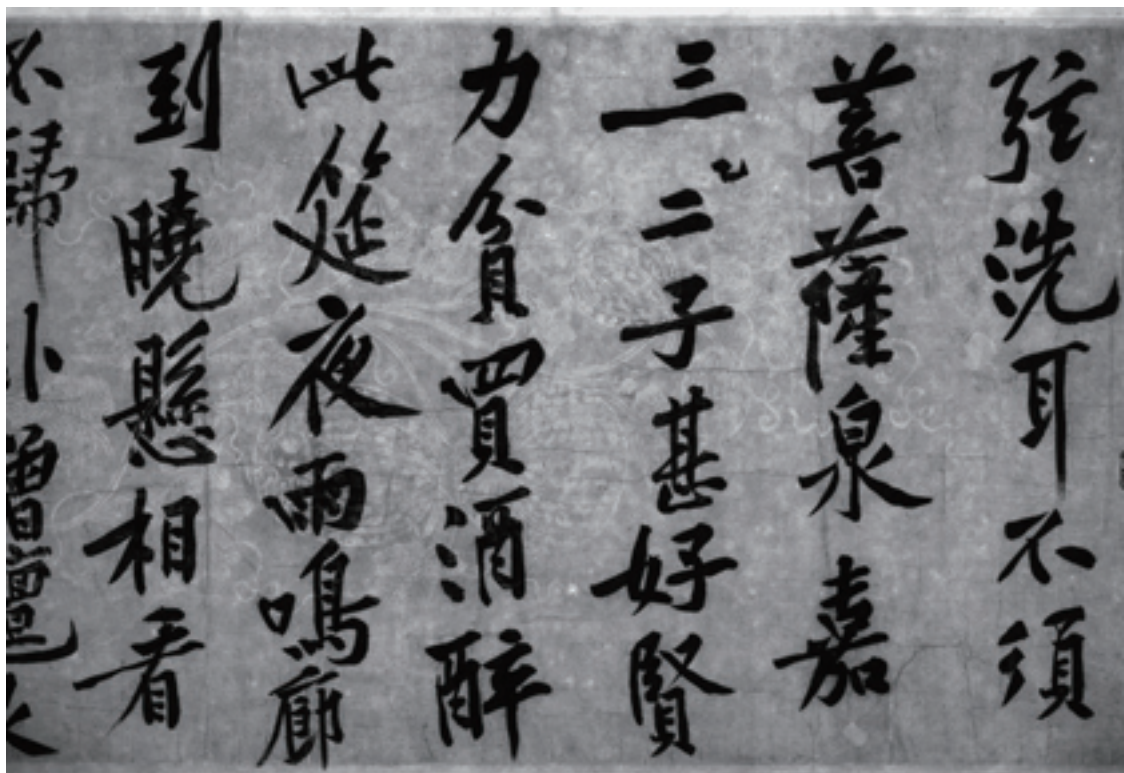 弦洗耳不須
菩薩泉嘉
三二子甚好賢
力貧買酒醉
此筵夜雨鳴廊
到曉懸相看
不歸